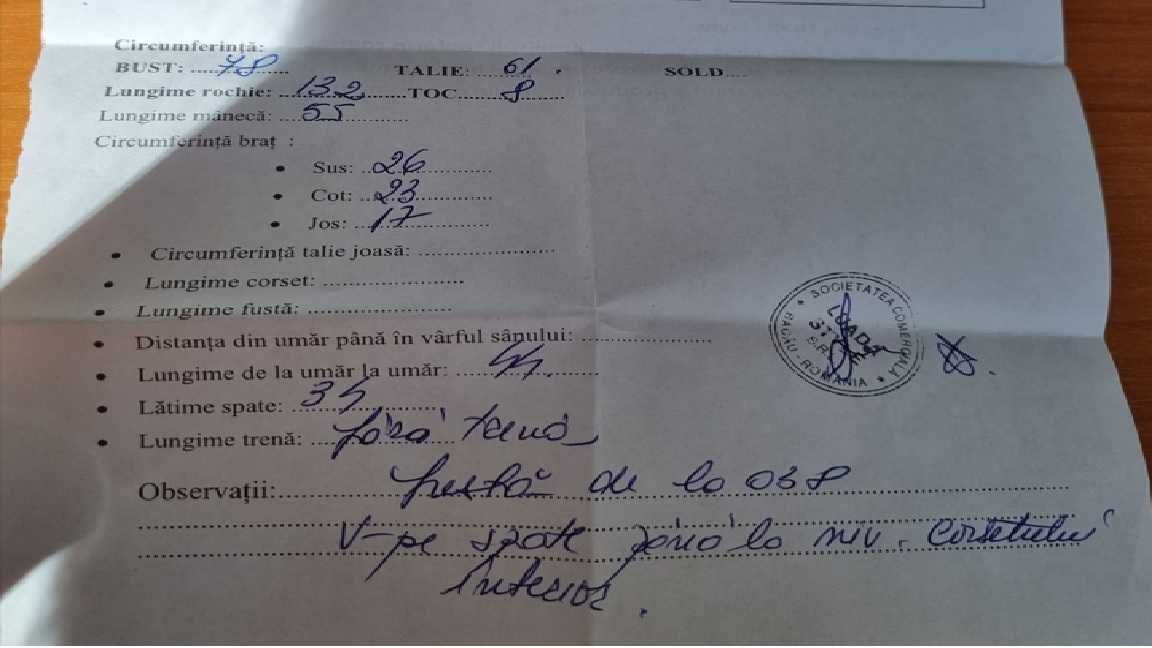 Circumferință:
BUST: .....78...... TALIE: ......61. SOLD....
Lungime rochie: ..132.......TOC.......8.........
Lungime mânecă: ....55............
Circumferință braț :
• Sus: ..26............
• Cot: ..23.............
• Jos: ...17.............
• Circumferință talie joasă: ........................
• Lungime corset: .........................
• Lungime fustă: .........................
• Distanța din umăr până în vârful sânului: ......................
• Lungime de la umăr la umăr: ....44.........
• Lățime spate: ...34..............
• Lungime trenă: .....fără trenă
Observații:............ fustă de la 038
V-pe spate până la niv. corsetului
interior.
SOCIETATEA COMERCIALĂ
BACĂU - ROMANIA